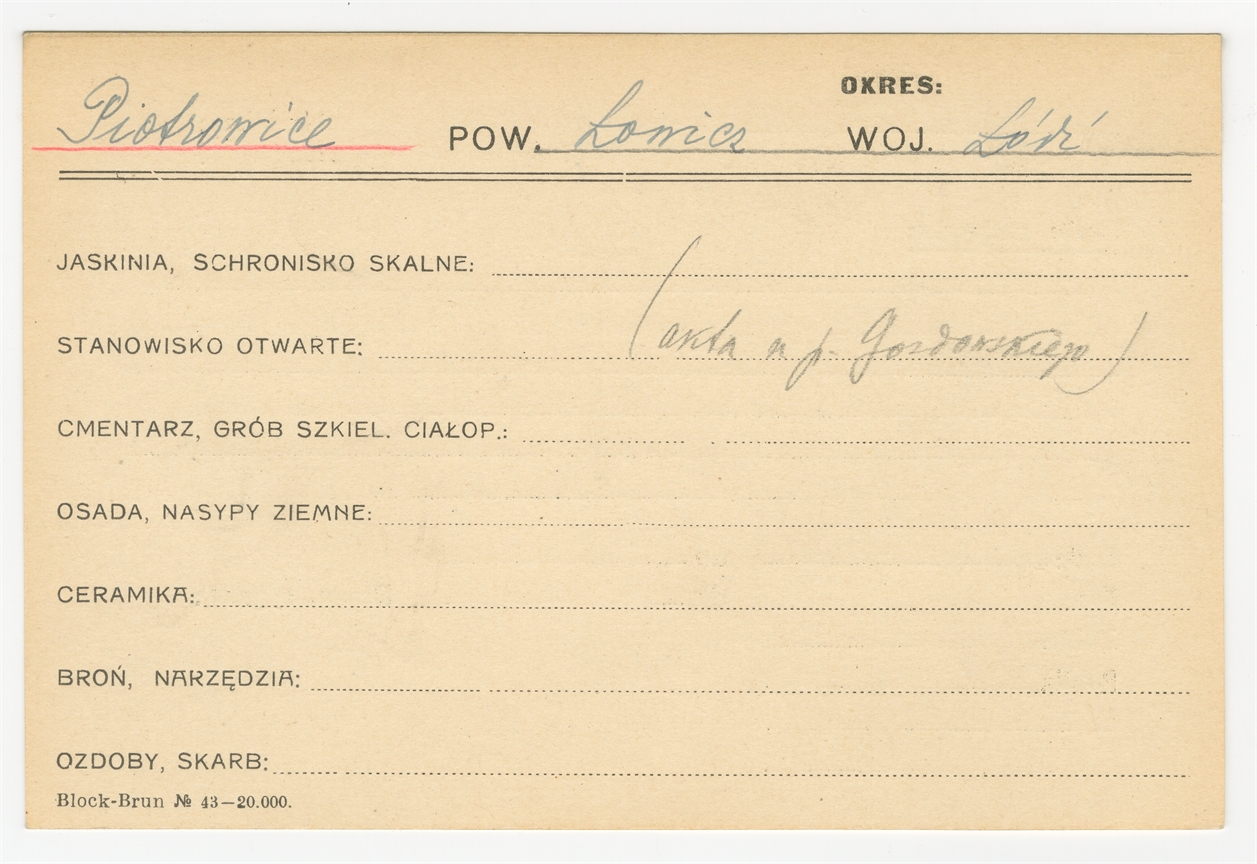 OKRES:
Piotrowice POW. Łowicz WOJ. Łódź
JASKINIA, SCHRONISKO SKALNE:
STANOWISKO OTWARTE: (akta u p. Gozdowskiego)
CMENTARZ, GRÓB SZKIEL. CIAŁOP.:
OSADA, NASYPY ZIEMNE:
CERAMIKA:
BROŃ, NARZĘDZIA:
OZDOBY, SKARB:
Block-Brun № 43—20.000.